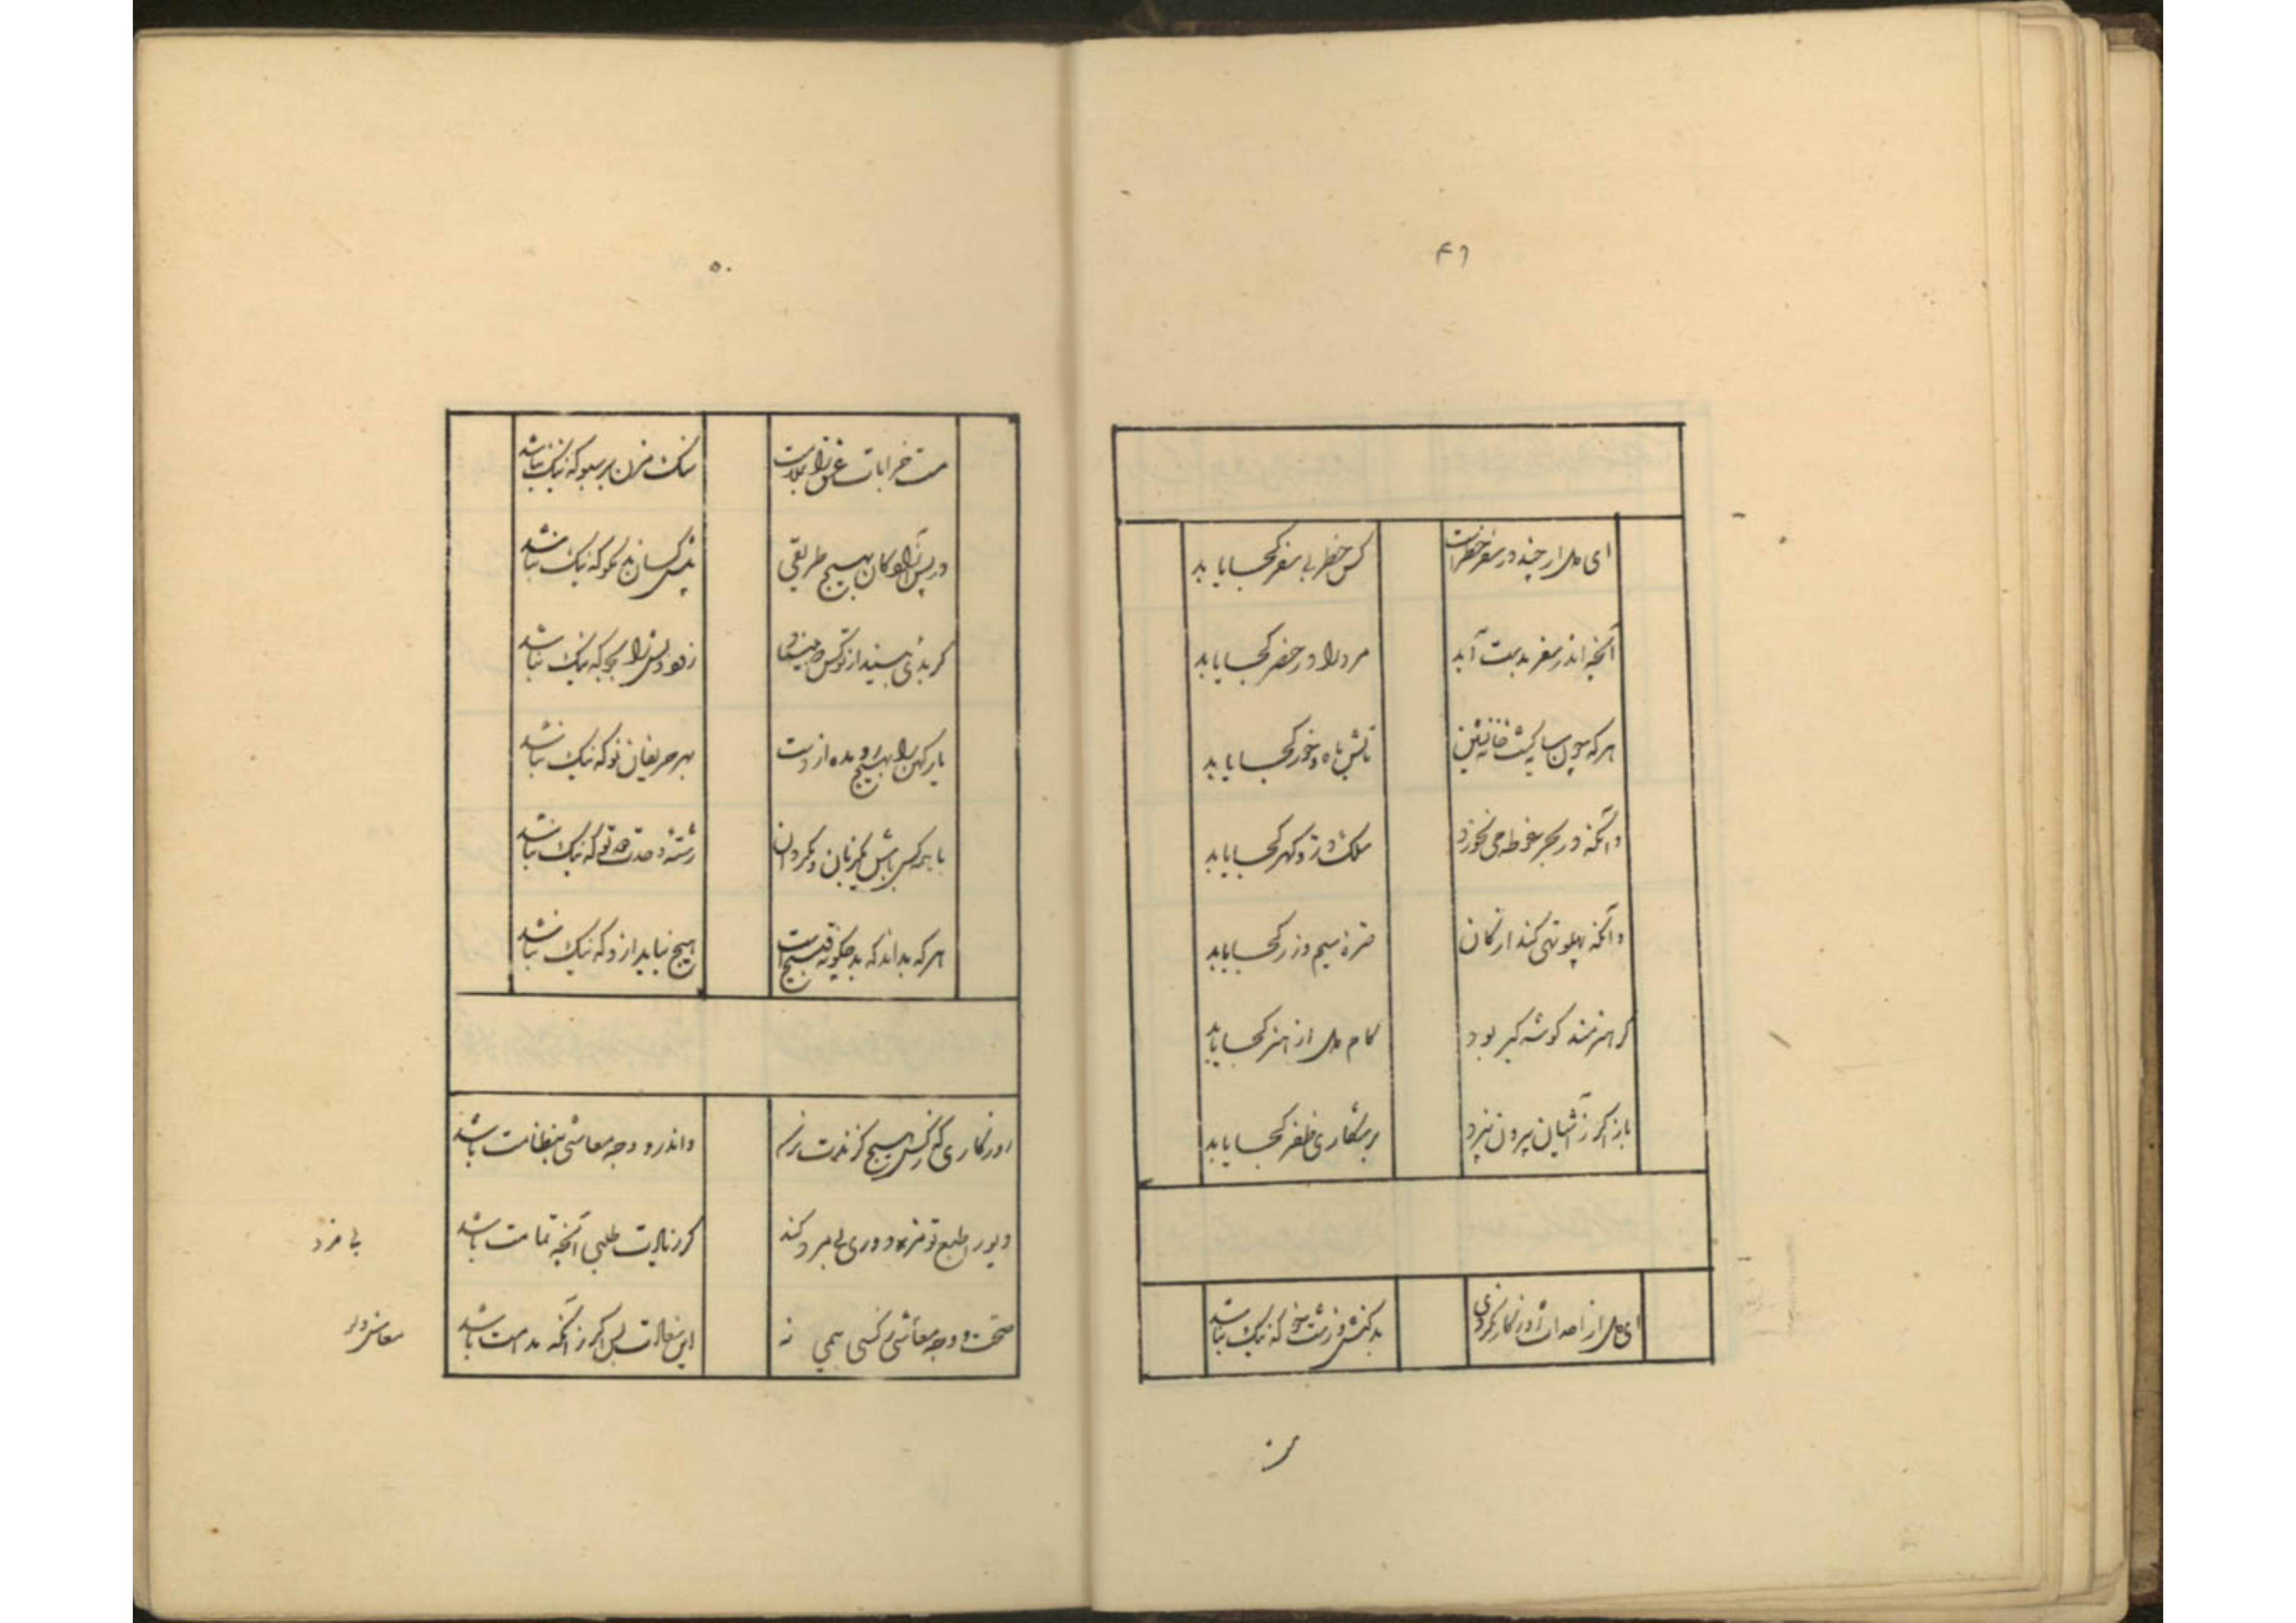 ۴۹
ای دل ار چند در سفر خطرست
کس خطر بی سفر کجا یابد
آنچه اندر سفر بدست آید
مرد را در حضر کجا یابد
هر که چون سایه گشت خانه نشین
تابش ماه و خور کجا یابد
وانکه در بحر غوطه می نخورد
سلک در و گهر کجا یابد
وانکه پهلو تهی کند از کان
صره سیم و زر کجا یابد
گر هنرمند گوشه گیر بود
کام دل از هنر کجا یابد
باز اگر ز آشیان برون نپرد
بر شکاری ظفر کجا یابد
ای دل از احداث روزگار نگردی
بد کنش و زشت خو که نیک نباشد
۵۰
مست خرابات عشق را بملامت
سنگ مزن بر سبو که نیک نباشد
در پس آزادگان بهیچ طریقی
پیش کسان بد مگو که نیک نباشد
گر بدئی بیند از تو کس
بجو که نیک نباشد
یار کهن را بهیچ رو مده از دست
بهر حریفان نو که نیک نباشد
با همه کس باش یکزبان و مگردان
رشته وحدت دو تو که نیک نباشد
هر که بداند که بد چگونه قبیح است
هیچ نیاید ازو که نیک نباشد
روزگاری که ز کس هیچ گزندت نرسد
واندرو وجه معاشی بنظامت باشد
کند
گر زیادت طلبی آنچه تمامت باشد
صحت و وجه معاشی و کسی همی نه
این سعادت بس اگر زانکه مدامت باشد
بی خرد